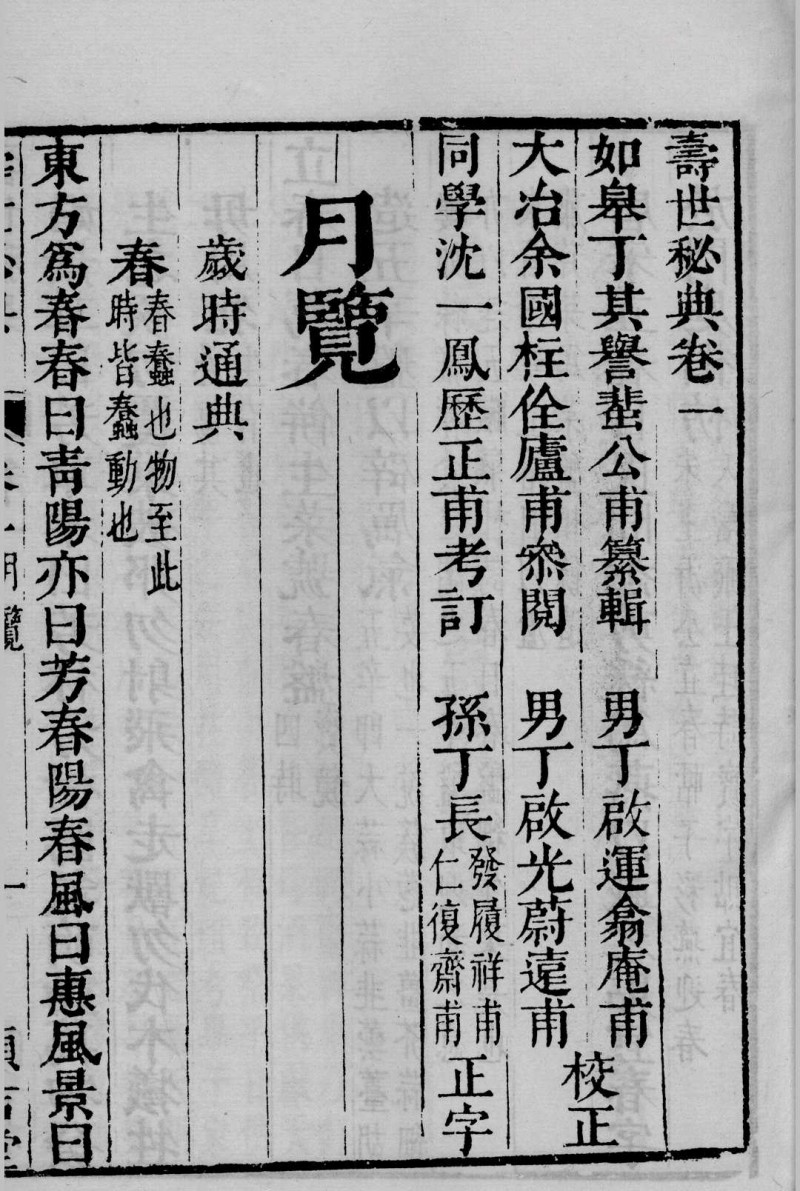 壽世秘典卷一
如皋丁其譽蜚公甫纂輯　男丁啟運翕庵甫
大冶余國柱佺廬甫叅閱　男丁啟光蔚遠甫
校正
同學沈一鳳歷正甫考訂　孫丁長
發履祥甫
仁復齋甫
正字
月覽
歲時通典
春
春蠢也物至此
時皆蠢動也
東方爲春春曰青陽亦曰芳春陽春風曰惠風景曰
月覽 一